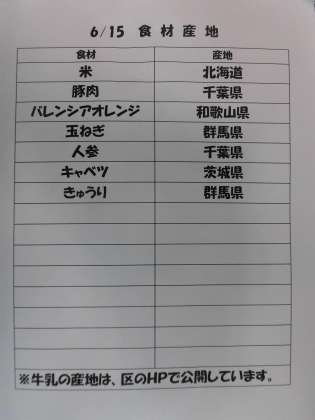 6/15 食材産地
食材 産地
米 北海道
豚肉 千葉県
バレンシアオレンジ 和歌山県
玉ねぎ 群馬県
人参 千葉県
キャベツ 茨城県
きゅうり 群馬県
※牛乳の産地は、区のHPで公開しています。